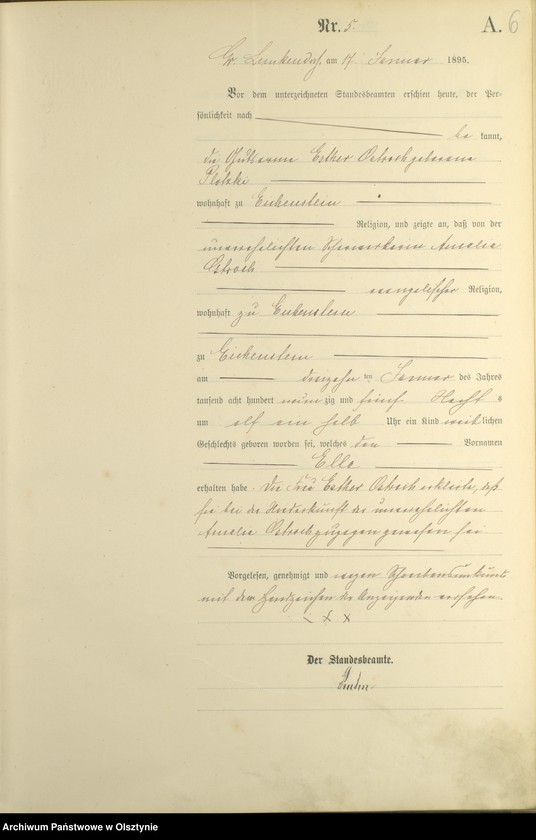 Nr. 5.
A. 6
Gr. Lemkendorf, am 17 Januar 1895.
Vor dem unterzeichneten Standesbeamten erschien heute, der Per-
sönlichkeit nach
be kannt,
die Esther Ostroch geborene
Plotzki
wohnhaft zu Eichenstein
Religion, und zeigte an, daß von der
unverehelichten Amalie
Ostroch
evangelischer Religion,
wohnhaft zu Eichenstein
zu Eichenstein
am dreizehn ten Januar des Jahres
tausend acht hundert neun zig und fünf Nachts
um elf ein halb Uhr ein Kind weib lichen
Geschlechts geboren worden sei, welches den Vornamen
Ella
erhalten habe. Die Frau Esther Ostroch erklärte, daß
sie bei der Niederkunft der unverehelichten
Amalie Ostroch zugegen gewesen sei
Vorgelesen, genehmigt und wegen Schreibensunkunde
mit dem Handzeichen der Anzeigenden versehen.
x x x
Der Standesbeamte.
Archiwum Państwowe w Olsztynie